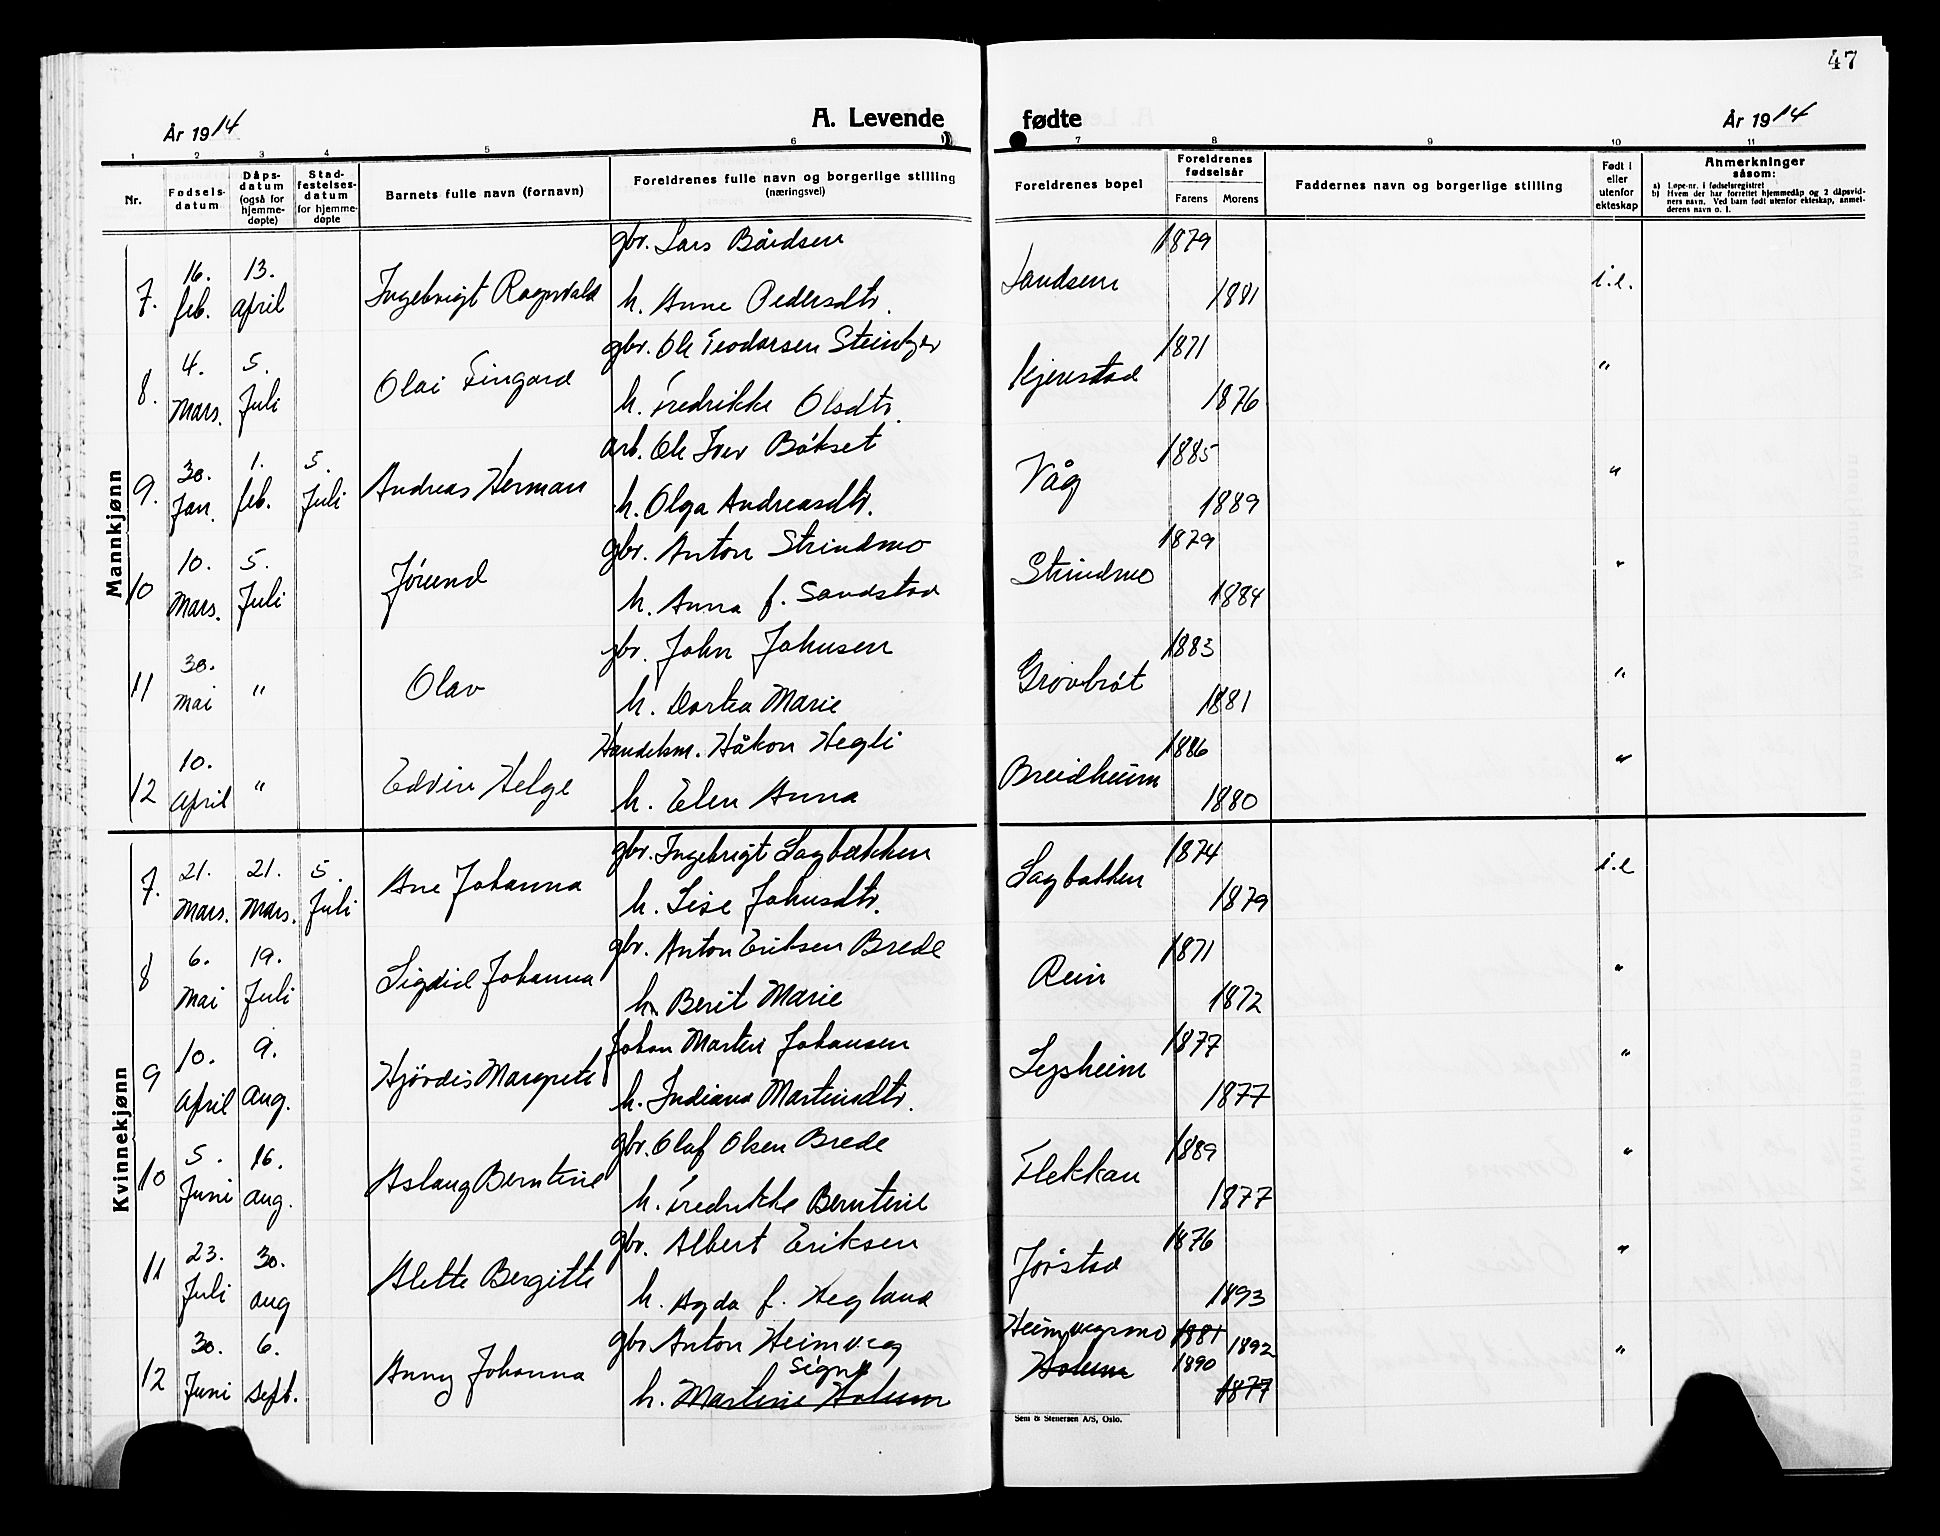 47
År 1914
A. Levende fødte
År 1914
1 2 3 4 5 6 7 8 9 10 11
Nr.
Fødsels-datum
Dåps-datum (også for hjemme-døpte)
Stad-festelses-datum for hjemme-døpte
Barnets fulle navn (fornavn)
Foreldrenes fulle navn og borgerlige stilling
(næringsvei)
Foreldrenes bopel
Foreldrenes fødselsår
Farens Morens
Faddernes navn og borgerlige stilling
Født i eller utenfor ekteskap
Anmerkninger
såsom:
a) Løpe-nr. i fødselsregistret
b) Hvem der har forrettet hjemmedåp og 2 dåpsvid-
ners navn. Ved barn født utenfor ekteskap, anmel-
derens navn o. l.
Mannkjønn
gbr. Lars Bårdsen 1879
7. 16. feb. 13. april Ingebrigt Ragnvald Sandsem i.e.
h. Anne Pedersdtr. 1881
gbr. Ole Teodorsen 1871
8. 4. Mars. 5. Juli Olai Fingard "
h. Fredrikke Olsdtr. 1876
arb. Ole Iver Bökset 1885
9. 30. Jan. 1. feb. 5. Juli Andreas Herman Våg "
h. Olga Andreasdtr. 1889
gbr. Anton Strindmo 1879
10 10. Mars. 5. Juli Jörund Strindmo "
h. Anna f. Sandstad 1884
gbr. John Johnsen 1883
11 30. Mai " Olav Grövbröt "
h. Dortea Marie 1881
Handelsm. Håkon Hegli 1886
12 10. April " Edvin Helge Breidheim "
h. Elen Anna 1880
Kvinnekjønn
gbr. Ingebrigt Lagbækken 1874
7. 21. Mars. 21. Mars. 5. Juli Ane Johanna Lagbækken i.e
h. Lise Johnsdtr. 1879
gbr. Anton Eriksen Brede 1871
8 6. Mai 19. Juli Sigdid Johanna Rein "
h. Berit Marie 1872
Johan Martin Johansen 1877
9 10. April 9. Aug. Hjördis Margrete Legsheim "
h. Indiana Martinsdtr. 1877
gbr. Olaf Olsen Brede 1889
10 5. Juni 16. Aug. Aslaug Berntine Flekkan "
h. Fredrikke Berntine 1877
gbr. Albert Eriksen 1876
11 23. Juli 30. Aug Alette Bergitte Jörstad "
h. Agda f. Hegland 1893
gbr Anton Heimveg Heimvegsmo 1881 1892
12 30. Juni 6. Sept. Anny Johanna Holum 1890 "
Signe
h. Martine Holum 1877
Sem & Stenersen A/S, Oslo.